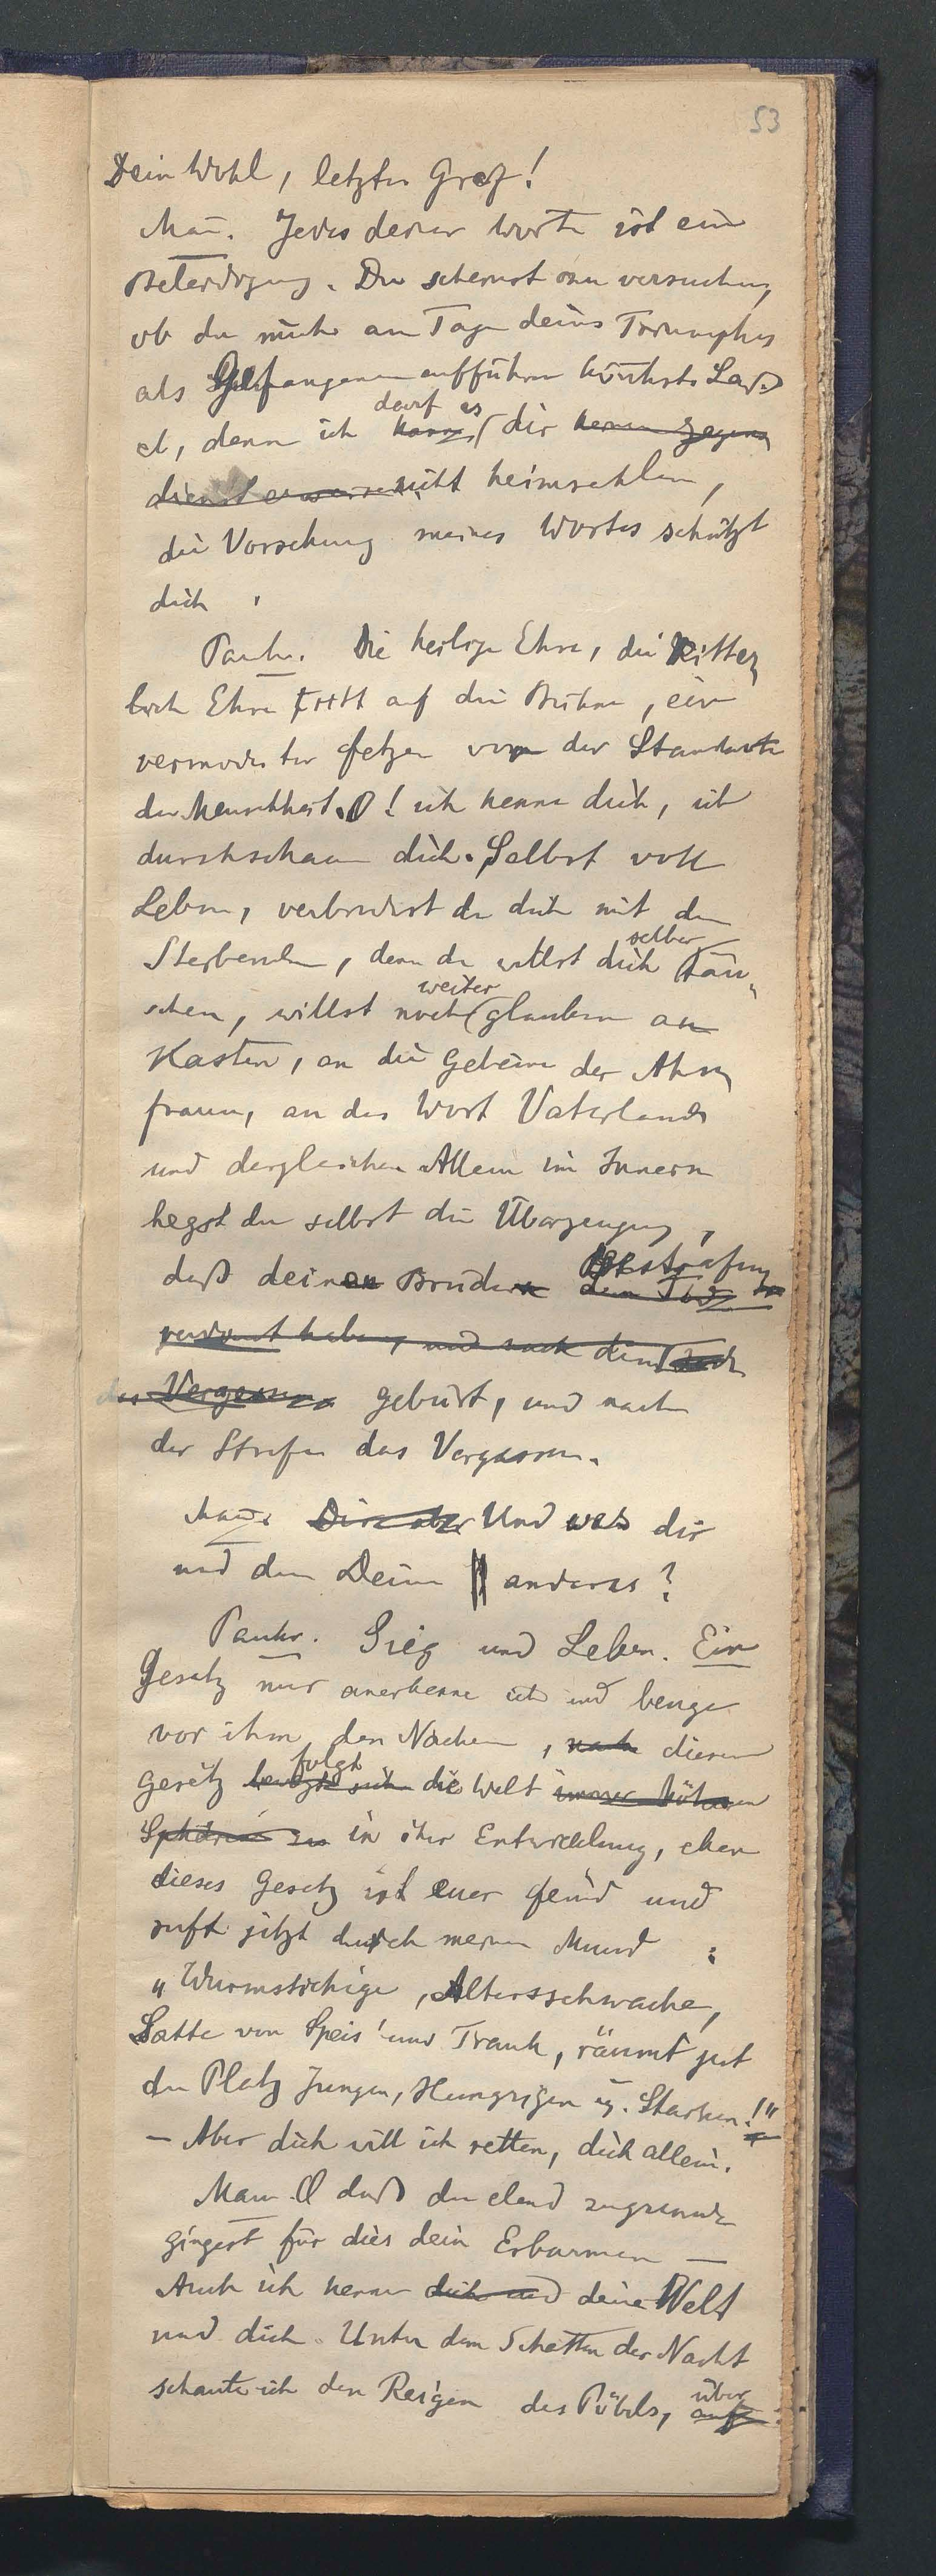 53
Dein Wohl, letzter Graf!
Man. Jedes deiner Worte ist eine
Beleidigung. Du scheinst nur versuchen,
ob du mich am Tage deines Triumphes
als Gefangenen aufführen könntest. Laß
darf es
es, denn ich kann dir keinen Gegen
dienst erweisen nicht heimzahlen,
die Vorsehung meines Wortes schützt
dich.
Pankr. Die heilige Ehre, die Ritter
liche Ehre tritt auf die Bühne, ein
vermoderter Fetzen von der Standarte
der Menschheit. O! ich kenne dich, ich
durchschaue dich. Selbst voll
Leben, verbrüderst du dich mit dem
selber
Sterbenden, denn du willst dich täu-
weiter
schen, willst noch glauben an
Kasten, an die Gebeine der Ahn
frauen, an das Wort Vaterland
und dergleichen. Allein im Innern
hegst du selbst die Überzeugung,
Bestrafung
daß deinen Brüdern den Tod
verdient haben, und nach dem Tode
das Vergessen gebürt, und nach
der Strafe das Vergessen.
Man. Dir aber Und was dir
und den Deinen anderes?
Pankr. Sieg und Leben. Ein
Gesetz nur anerkenne ich und beuge
vor ihm den Nacken, nach diesem
folgt
Gesetz bewegt sich die Welt immer höheren
Sphären zu in ihrer Entwicklung, eben
dieses Gesetz ist euer Feind und
ruft jetzt durch meinen Mund:
„Wurmstichige, Altersschwache,
Satte von Speis' und Trank, räumt jetzt
den Platz Jungen, Hungrigen u. Starken!"
– Aber dich will ich retten, dich allein.
Man. O daß du elend zugrunde
gingest für dies dein Erbarmen —
Auch ich kenne dich und deine Welt
und dich. Unter dem Schatten der Nacht
schaute ich den Reigen des Pöbels, auf
über